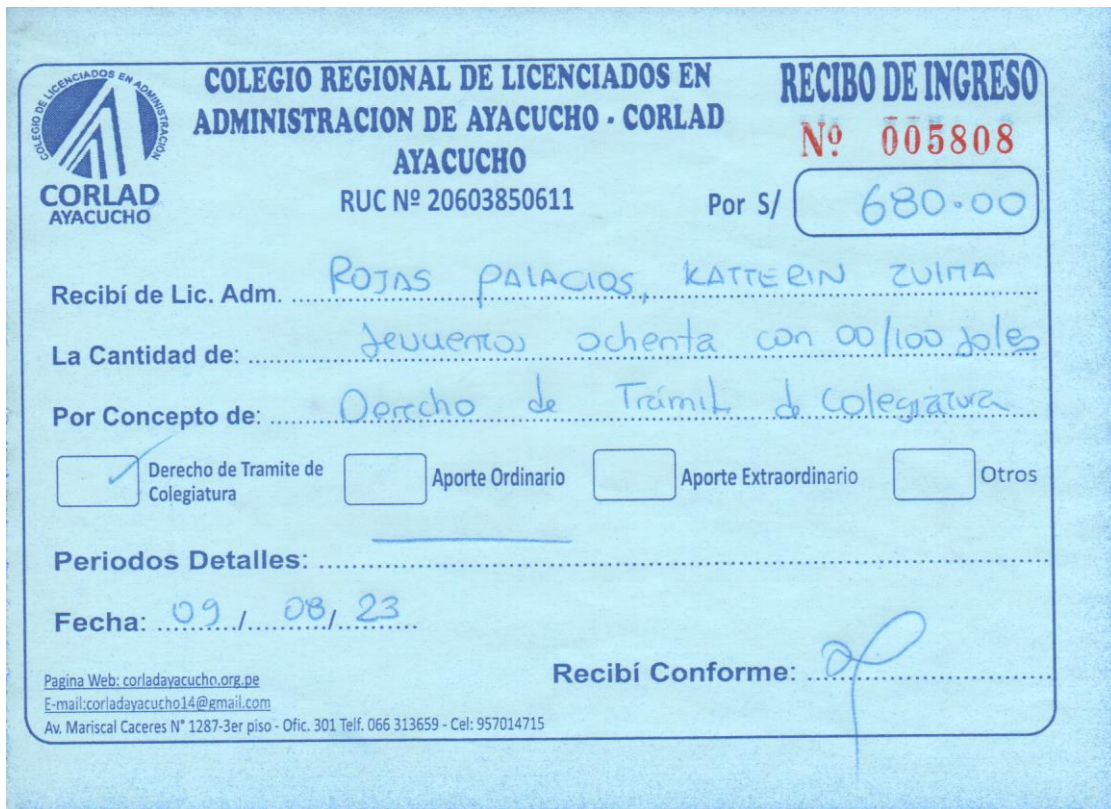 COLEGIO DE LICENCIADOS EN ADMINISTRACIÓN
CORLAD
AYACUCHO
COLEGIO REGIONAL DE LICENCIADOS EN
ADMINISTRACION DE AYACUCHO - CORLAD
AYACUCHO
RUC Nº 20603850611
RECIBO DE INGRESO
Nº 005808
Por S/ 680.00
Recibí de Lic. Adm. ROJAS PALACIOS, KATTERIN ZULMA
La Cantidad de: ochenta con 00/100 soles
Por Concepto de: Derecho de Trámite de Colegiatura
Derecho de Tramite de
Colegiatura
Aporte Ordinario
Aporte Extraordinario
Otros
Periodos Detalles:
Fecha: 09/ 08/ 23
Recibí Conforme:
Pagina Web: corladayacucho.org.pe
E-mail:corladayacucho14@gmail.com
Av. Mariscal Caceres N° 1287-3er piso - Ofic. 301 Telf. 066 313659 - Cel: 957014715